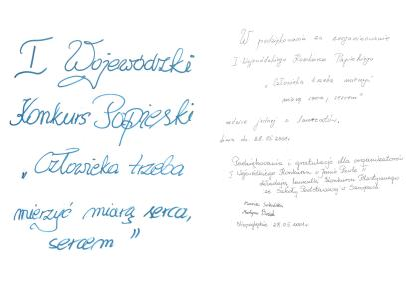 I Wojewódzki
Konkurs Papieski
„Człowieka trzeba
mierzyć miarą serca,
sercem”
W podziękowaniu za zorganizowanie
I Wojewódzkiego Konkursu Papieskiego
„Człowieka trzeba mierzyć
miarą serca, sercem”
jednej z laureatów,
dnia 28.05.
Podziękowania i gratulacje dla organizatorów
I Wojewódzkiego Konkursu o Janie Pawle II
składają laureatki Konkursu Plastycznego
ze Szkoły Podstawowej w